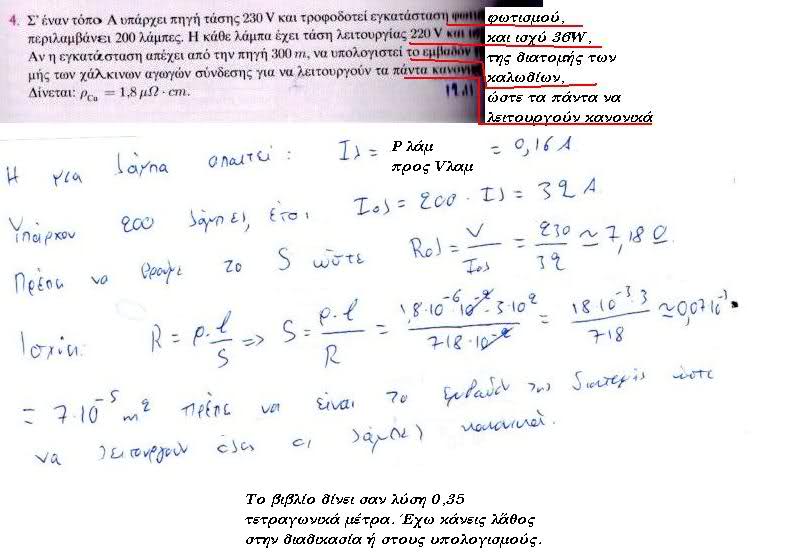 4. Σ' έναν τόπο Α υπάρχει πηγή τάσης 230 V και τροφοδοτεί εγκατάσταση φωτισμού,
περιλαμβάνει 200 λάμπες. Η κάθε λάμπα έχει τάση λειτουργίας 220 V και ισχύ 36W,
Αν η εγκατάσταση απέχει από την πηγή 300 m, να υπολογιστεί το εμβαδόν της διατομής των
μής των χάλκινων αγωγών σύνδεσης για να λειτουργούν τα πάντα κανονι καλωδίων,
Δίνεται: ρCu = 1,8 μΩ · cm. ώστε τα πάντα να
λειτουργούν κανονικά
Η μια λάμπα απαιτεί: Ιλ = P λάμ προς Vλαμ = 0,16 A
Υπάρχουν 200 λάμπες, έτσι Ιολ = 200 · Ιλ = 32 A
Πρέπει να βρούμε το S ώστε Rολ = V/Ιολ = 230/32 ≃ 7,18 Ω.
Ισχύει: R = ρ·l/S => S = ρ·l/R = 1,8·10⁻⁶·10⁻²·3·10²/718·10⁻² = 18·10⁻³·3/718 ≃ 0,07·10⁻³
= 7·10⁻⁵ m² πρέπει να είναι το εμβαδό της διατομής ώστε
να λειτουργούν όλες οι λάμπες κανονικά.
Το βιβλίο δίνει σαν λύση 0,35
τετραγωνικά μέτρα. Έχω κάνεις λάθος
στην διαδικασία ή στους υπολογισμούς.